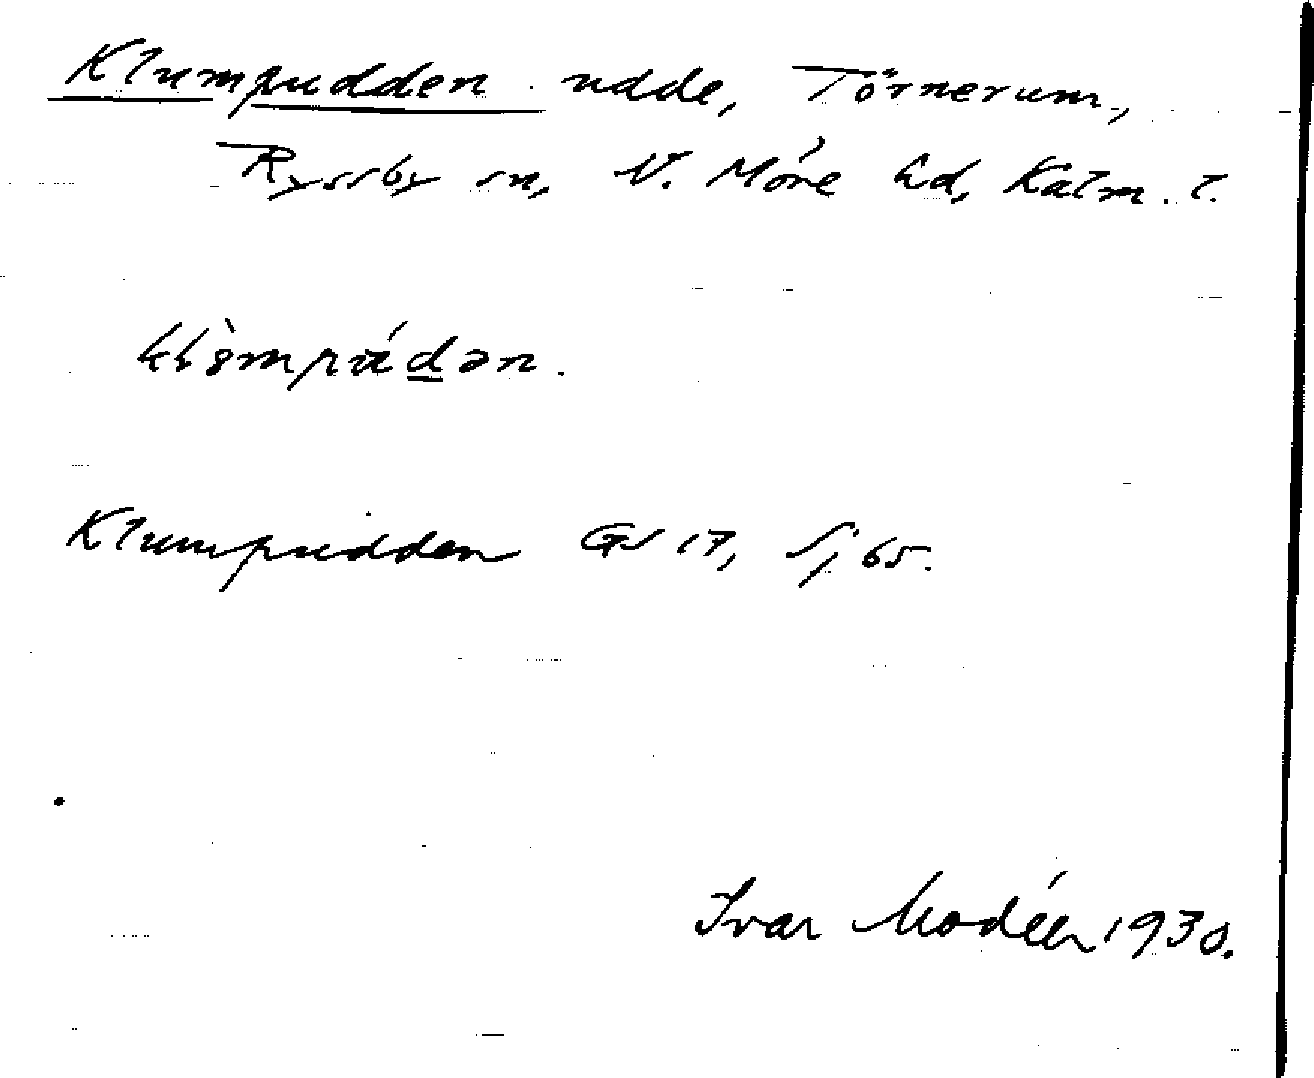 Klumpudden udde, Törnerum,
Ryssby sn, N. Möre hd, Kalm. l.
Klumpudden GS 17, Sj 65.
Ivar Modéer 1930.